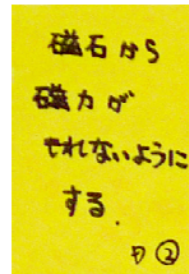 磁石から
磁力が
それないように
する.
②